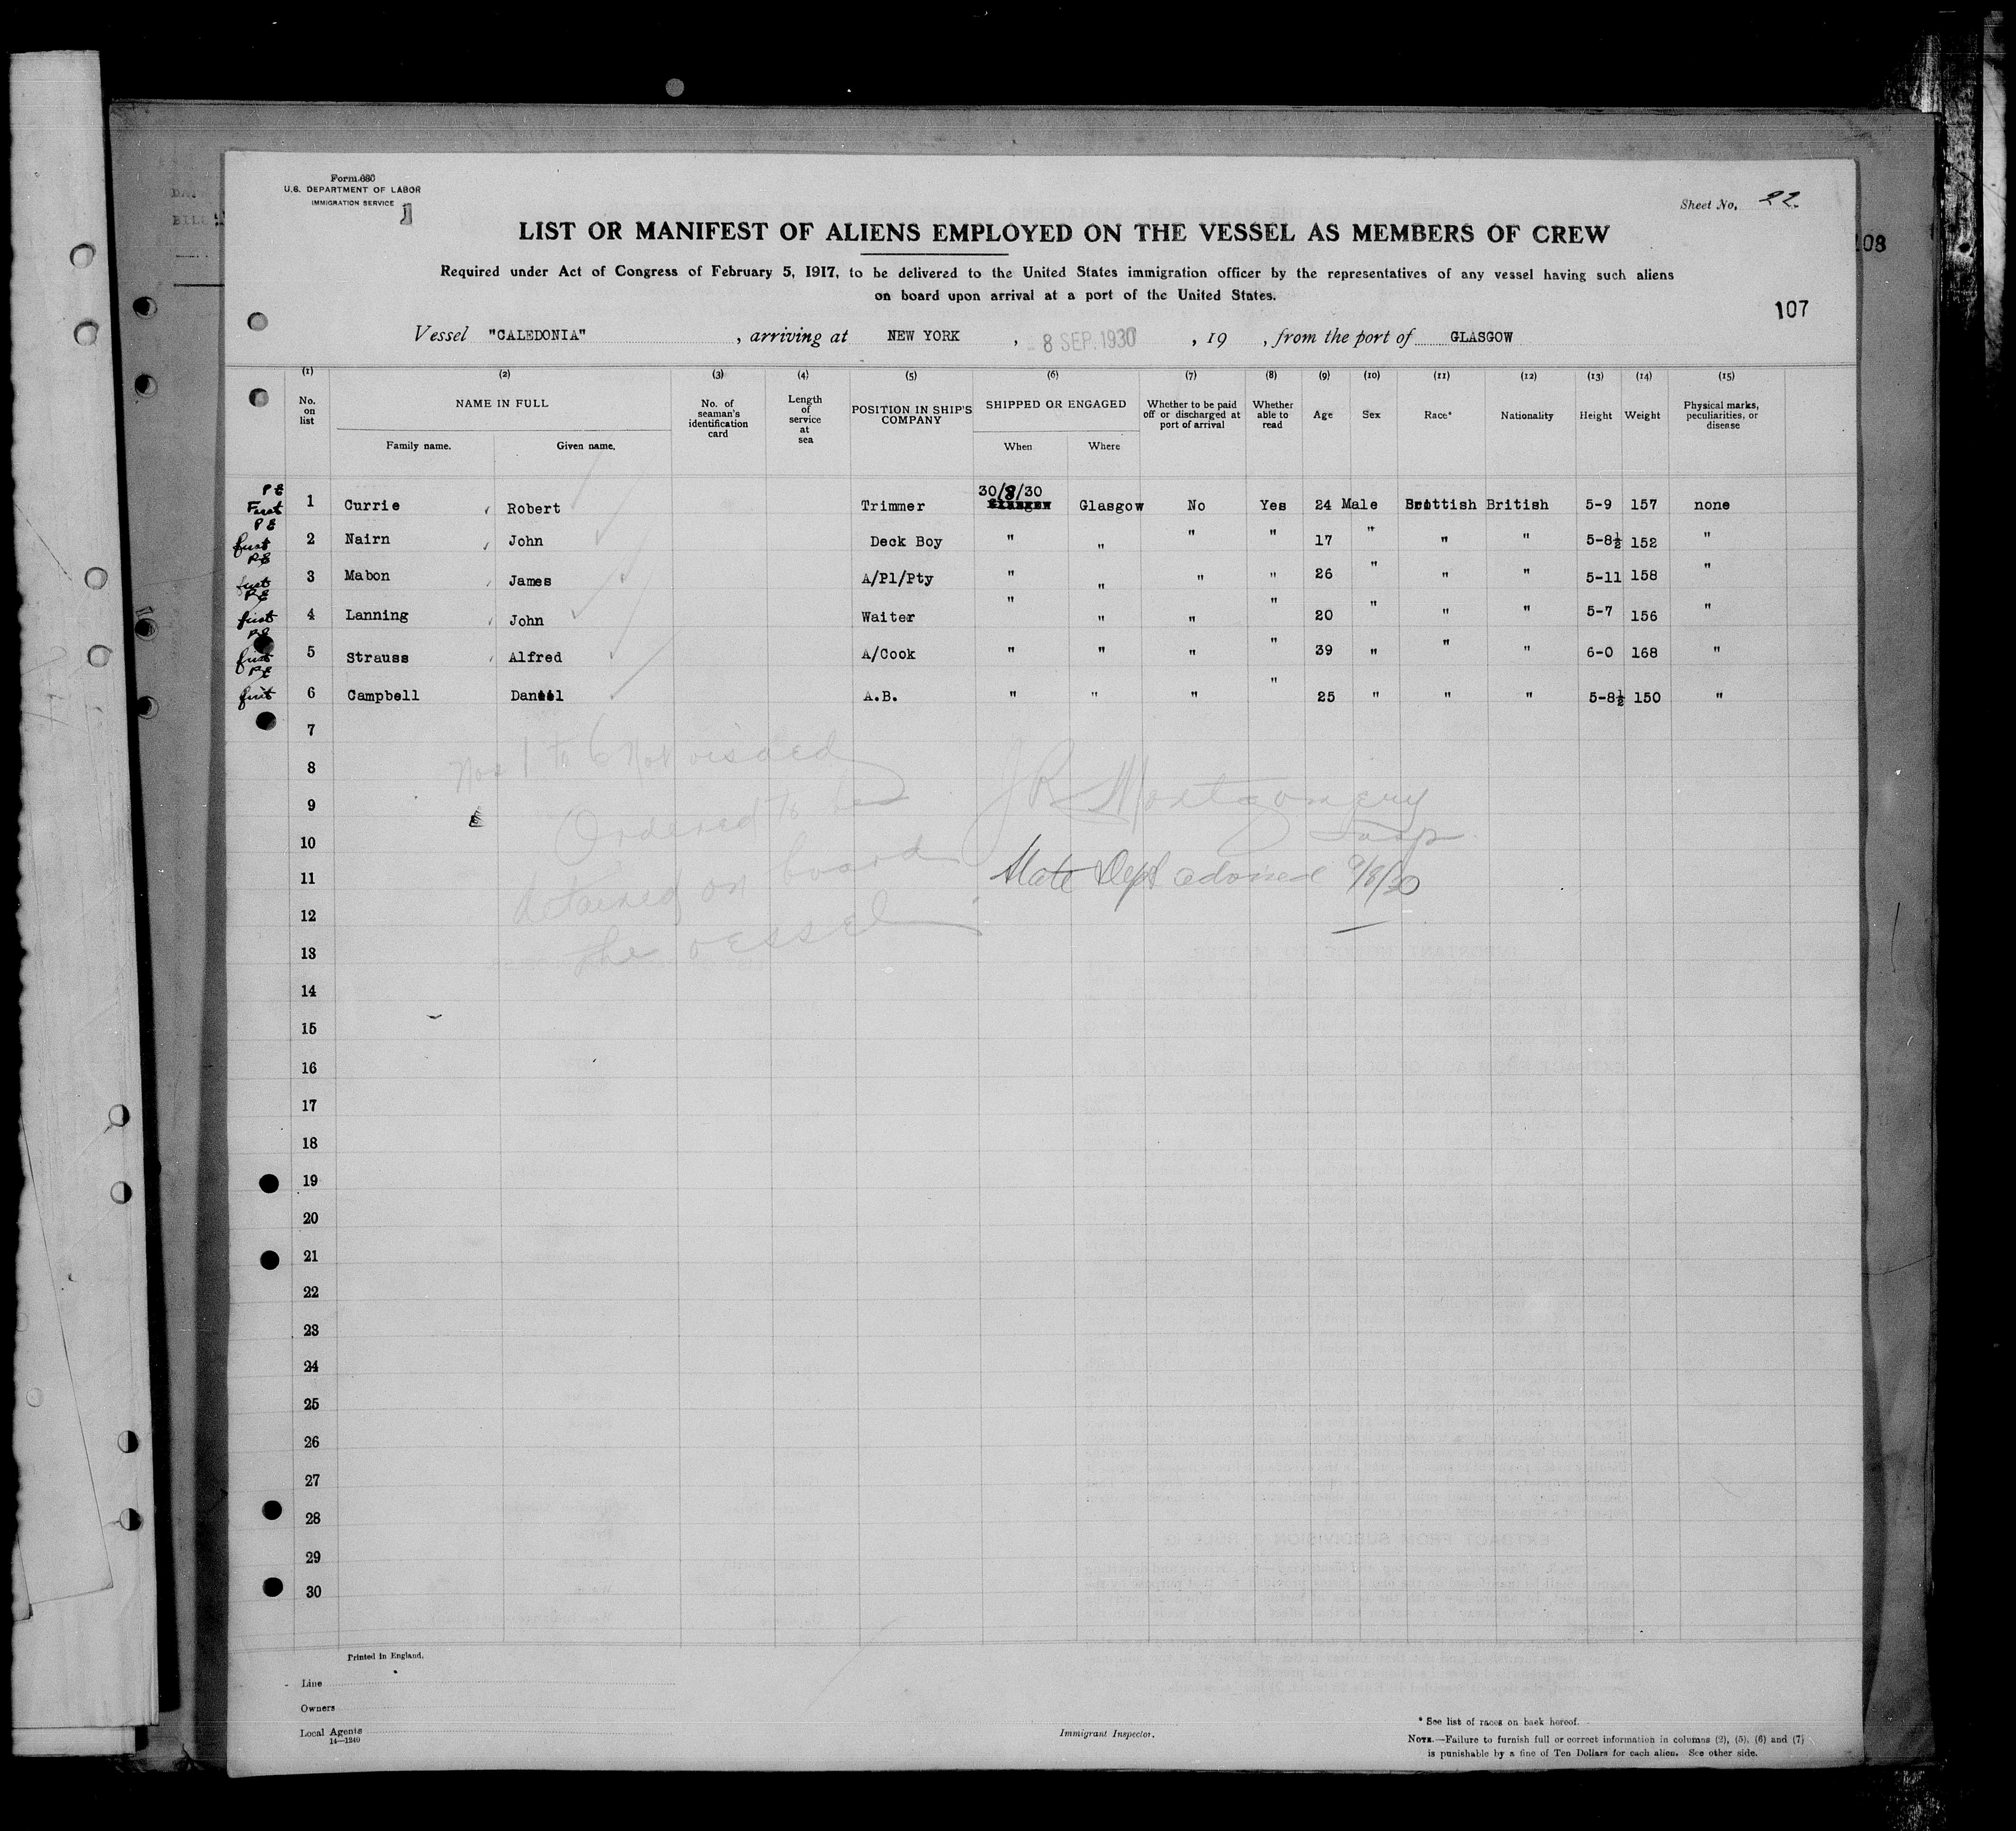 Form 680
U.S. DEPARTMENT OF LABOR
IMMIGRATION SERVICE
Sheet No. 22
LIST OR MANIFEST OF ALIENS EMPLOYED ON THE VESSEL AS MEMBERS OF CREW
Required under Act of Congress of February 5, 1917, to be delivered to the United States immigration officer by the representatives of any vessel having such aliens
on board upon arrival at a port of the United States.
108
107
Vessel "CALEDONIA" , arriving at NEW YORK , - 8 SEP. 1930 , 19 , from the port of GLASGOW
(1) (2) (3) (4) (5) (6) (7) (8) (9) (10) (11) (12) (13) (14) (15)
No. on list NAME IN FULL No. of seaman's identification card Length of service at sea POSITION IN SHIP'S COMPANY SHIPPED OR ENGAGED Whether to be paid off or discharged at port of arrival Whether able to read Age Sex Race* Nationality Height Weight Physical marks, peculiarities, or disease
Family name. Given name. When Where
PE First 1 Currie Robert Trimmer 30/8/30 Glasgow No Yes 24 Male Scottish British 5-9 157 none
PE first 2 Nairn John Deck Boy " " " " 17 " " " 5-8½ 152 "
PE first 3 Mabon James A/Pl/Pty " " " " 26 " " " 5-11 158 "
PE first 4 Lanning John Waiter " " " " 20 " " " 5-7 156 "
PE first 5 Strauss Alfred A/Cook " " " " 39 " " " 6-0 168 "
PE first 6 Campbell Daniel A.B. " " " " 25 " " " 5-8½ 150 "
7
Nos 1 to 6 Not visaed
8
9
Ordered to be
J R Montgomery
Insp
10
detained on board
11
State Dept advised 9/8/30
12
the vessel
13
14
15
16
17
18
19
20
21
22
23
24
25
26
27
28
29
30
Printed in England.
Line
Owners
Local Agents
14—1240
Immigrant Inspector.
* See list of races on back hereof.
NOTE.—Failure to furnish full or correct information in columns (2), (5), (6) and (7)
is punishable by a fine of Ten Dollars for each alien. See other side.